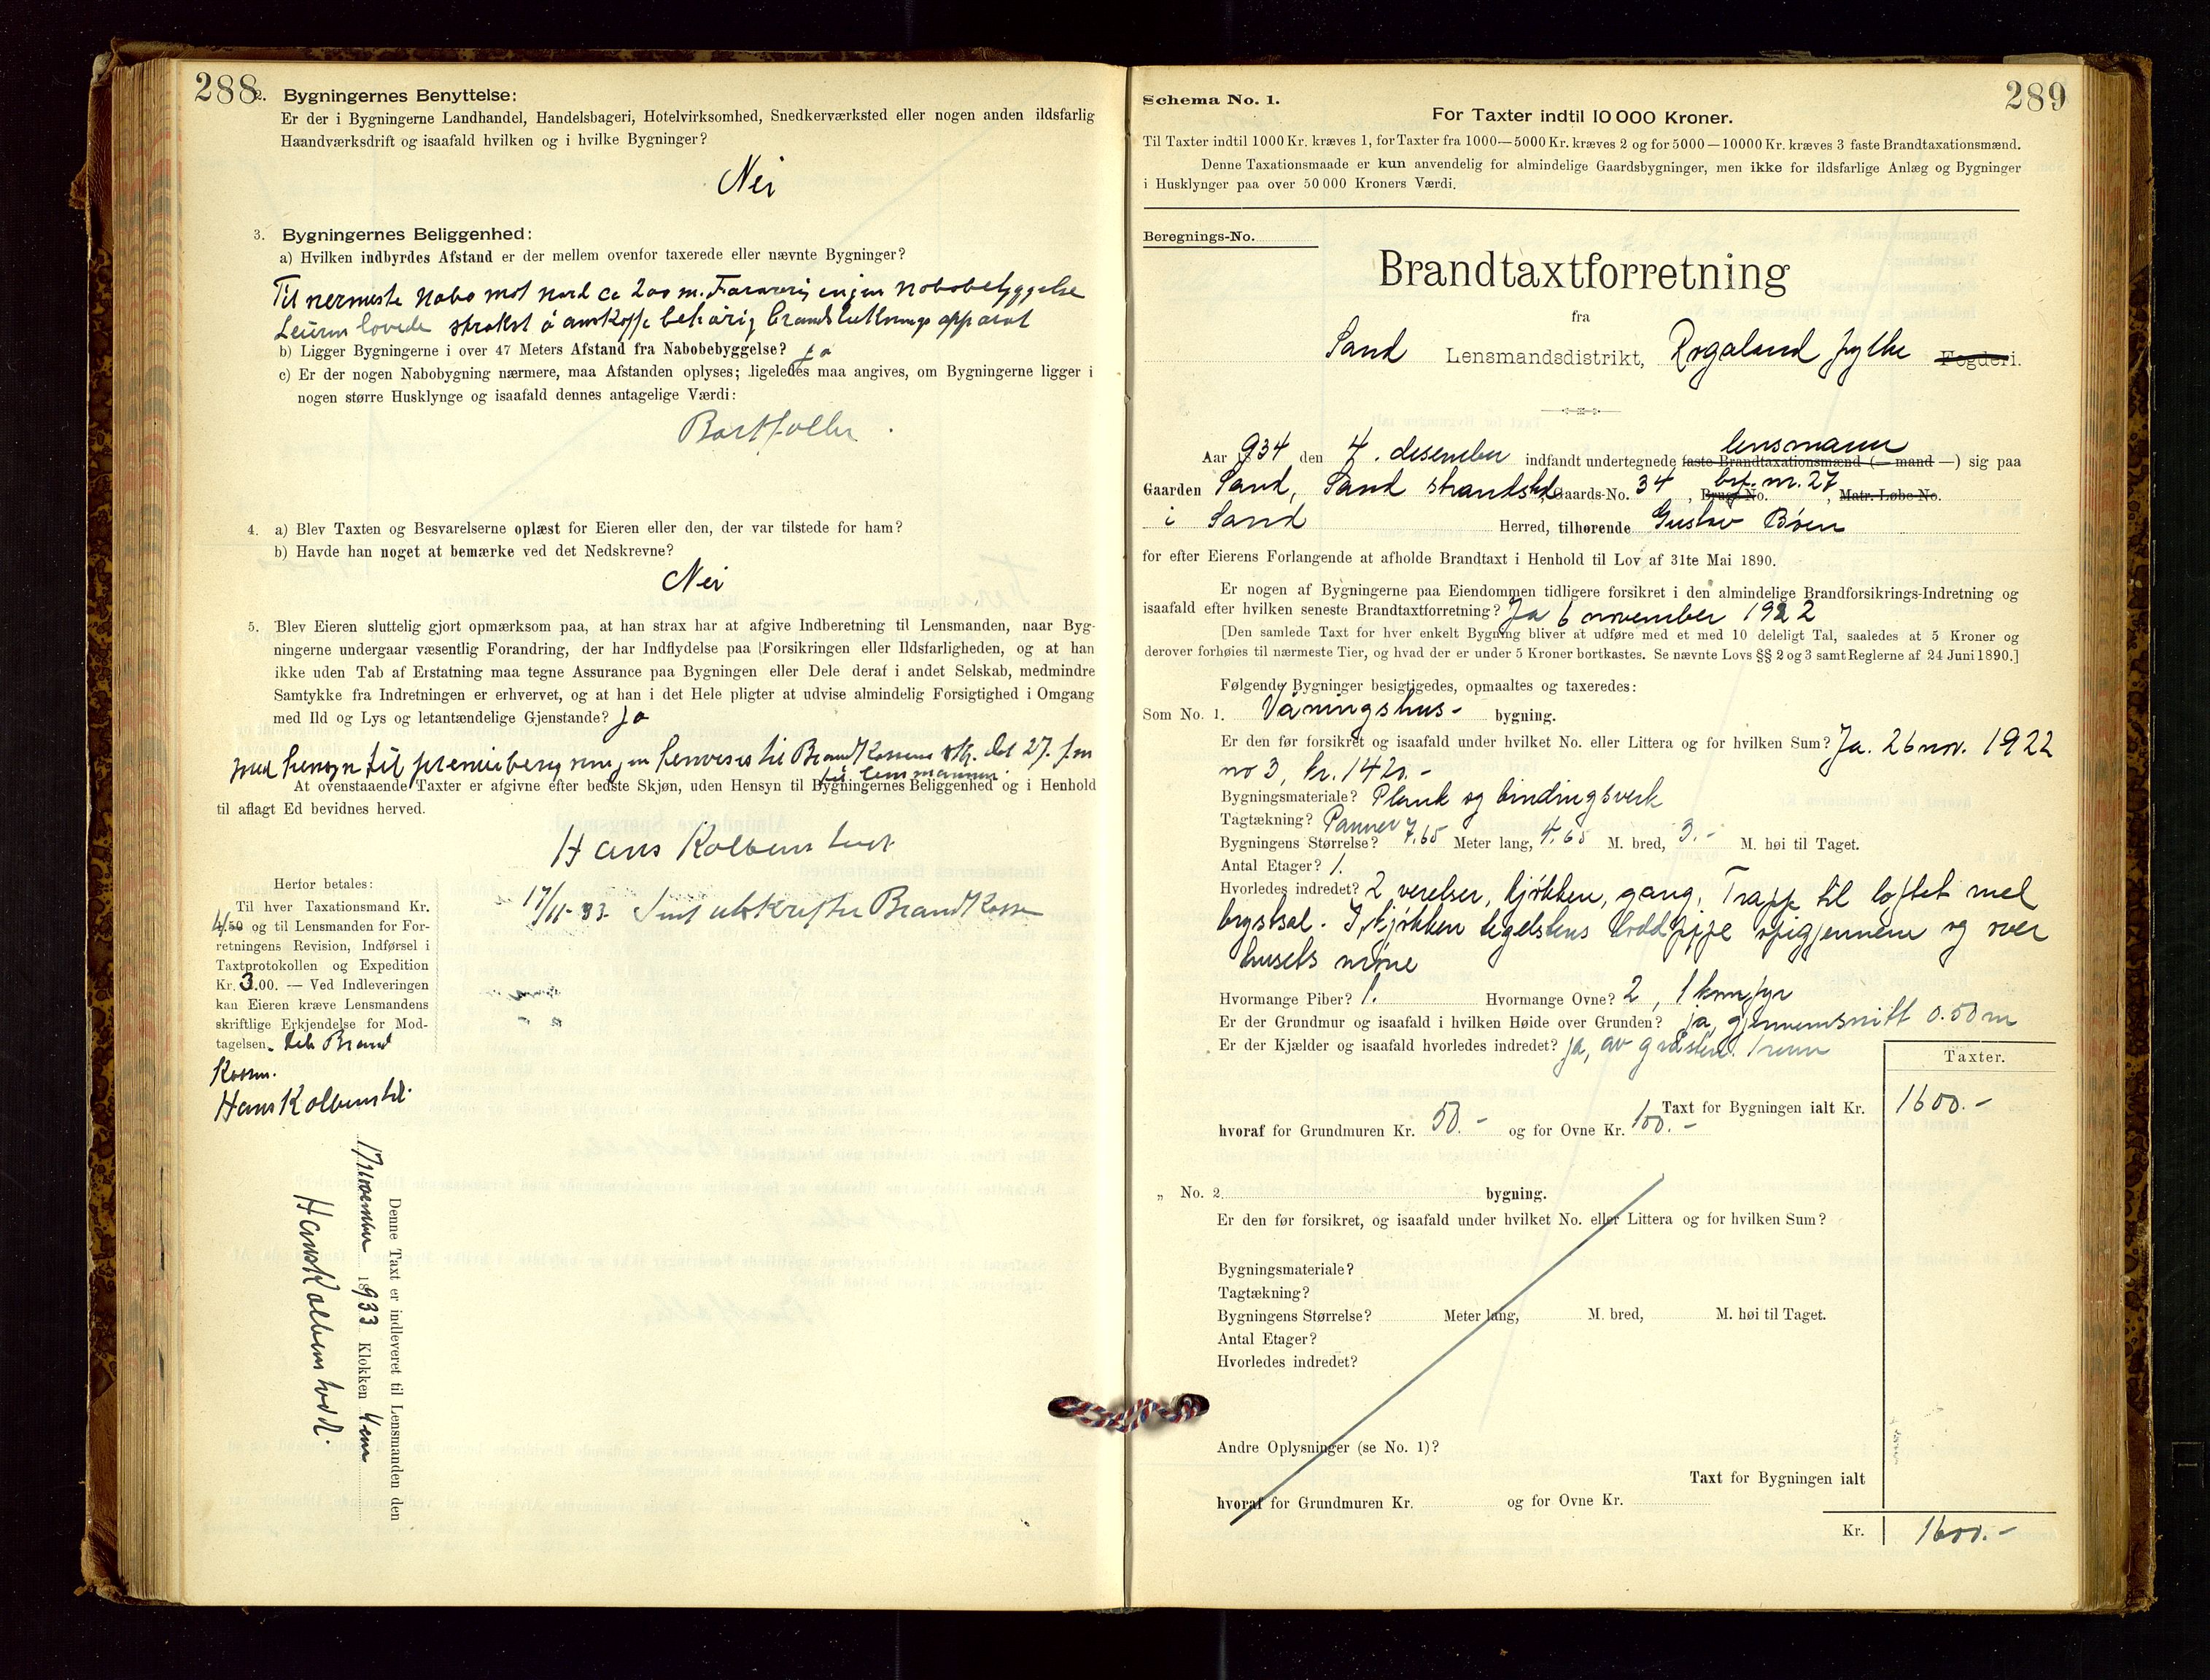 288
2. Bygningernes Benyttelse:
Er der i Bygningerne Landhandel, Handelsbageri, Hotelvirksomhed, Snedkerværksted eller nogen anden ildsfarlig
Haandværksdrift og isaafald hvilken og i hvilke Bygninger?
Nei
3. Bygningernes Beliggenhed:
a) Hvilken indbyrdes Afstand er der mellem ovenfor taxerede eller nævnte Bygninger?
Til nermeste nabo mot nord ca 200 m. Forøvrig ingen nabobebyggelse
lovede strakst å anskaffe behørig brandslukningsapparat
b) Ligger Bygningerne i over 47 Meters Afstand fra Nabobebyggelse? Ja
c) Er der nogen Nabobygning nærmere, maa Afstanden oplyses; ligeledes maa angives, om Bygningerne ligger i
nogen større Husklynge og isaafald dennes antagelige Værdi:
Bortfaller.
4. a) Blev Taxten og Besvarelserne oplæst for Eieren eller den, der var tilstede for ham?
b) Havde han noget at bemærke ved det Nedskrevne?
Nei
5. Blev Eieren sluttelig gjort opmærksom paa, at han strax har at afgive Indberetning til Lensmanden, naar Byg-
ningerne undergaar væsentlig Forandring, der har Indflydelse paa Forsikringen eller Ildsfarligheden, og at han
ikke uden Tab af Erstatning maa tegne Assurance paa Bygningen eller Dele deraf i andet Selskab, medmindre
Samtykke fra Indretningen er erhvervet, og at han i det Hele pligter at udvise almindelig Forsigtighed i Omgang
med Ild og Lys og letantændelige Gjenstande? Ja
med hensyn til premieberegningen henvises til Brandkassens skr. dat 27. f.m
til lensmannen.
At ovenstaaende Taxter er afgivne efter bedste Skjøn, uden Hensyn til Bygningernes Beliggenhed og i Henhold
til aflagt Ed bevidnes herved.
Hans Kolbenstvedt
17/11-33. Sent utskrifter Brandkassen
Herfor betales:
Til hver Taxationsmand Kr.
4.50 og til Lensmanden for For-
retningens Revision, Indførsel i
Taxtprotokollen og Expedition
Kr. 3.00. — Ved Indleveringen
kan Eieren kræve Lensmandens
skriftlige Erkjendelse for Mod-
tagelsen. Brand
Kassen.
Hans Kolbenstvedt.
Denne Taxt er indleveret til Lensmanden den
17 november 1933 Klokken 4 em
Hans Kolbenstvedt.
289
Schema No. 1.
For Taxter indtil 10 000 Kroner.
Til Taxter indtil 1000 Kr. kræves 1, for Taxter fra 1000—5000 Kr. kræves 2 og for 5000—10000 Kr. kræves 3 faste Brandtaxationsmænd.
Denne Taxationsmaade er kun anvendelig for almindelige Gaardsbygninger, men ikke for ildsfarlige Anlæg og Bygninger
i Husklynger paa over 50 000 Kroners Værdi.
Beregnings-No.
Brandtaxtforretning
fra
Sand Lensmandsdistrikt, Rogaland fylke Fogderi.
Aar 1934 den 4. desember indfandt undertegnede faste Brandtaxationsmænd (— mand —) lensmann sig paa
Gaarden Sand, Sand strandsted Gaards-No. 34, Brugs-No. br. nr. 27, Matr. Løbe-No.
i Sand Herred, tilhørende Gustav Bøen
for efter Eierens Forlangende at afholde Brandtaxt i Henhold til Lov af 31te Mai 1890.
Er nogen af Bygningerne paa Eiendommen tidligere forsikret i den almindelige Brandforsikrings-Indretning og
isaafald efter hvilken seneste Brandtaxtforretning? Ja 6 november 1922
[Den samlede Taxt for hver enkelt Bygning bliver at udføre med et med 10 deleligt Tal, saaledes at 5 Kroner og
derover forhøies til nærmeste Tier, og hvad der er under 5 Kroner bortkastes. Se nævnte Lovs §§ 2 og 3 samt Reglerne af 24 Juni 1890.]
Følgende Bygninger besigtigedes, opmaaltes og taxeredes:
Som No. 1. Våningshus- bygning.
Er den før forsikret og isaafald under hvilket No. eller Littera og for hvilken Sum? Ja. 26 nov. 1922
no 3, kr. 1420.-
Bygningsmateriale? Plank og bindingsverk
Tagtækning? Panner
Bygningens Størrelse? 7.65 Meter lang, 4.65 M. bred, 3.- M. høi til Taget.
Antal Etager? 1.
Hvorledes indredet? 2 verelser, kjøkken, gang. Trapp til loftet med
brystsal. I kjøkken tegelstens loddpipe opigjennem og over
husets møne
Hvormange Piber? 1. Hvormange Ovne? 2, 1 komfyr
Er der Grundmur og isaafald i hvilken Høide over Grunden? Ja, gjennemsnitt 0.50 m
Er der Kjælder og isaafald hvorledes indredet? Ja, av gråsten. 1 rum
Taxter.
Taxt for Bygningen ialt Kr. 1600.-
hvoraf for Grundmuren Kr. 50.- og for Ovne Kr. 100.-
„ No. 2 bygning.
Er den før forsikret, og isaafald under hvilket No. eller Littera og for hvilken Sum?
Bygningsmateriale?
Tagtækning?
Bygningens Størrelse? Meter lang, M. bred, M. høi til Taget.
Antal Etager?
Hvorledes indredet?
Andre Oplysninger (se No. 1)?
Taxt for Bygningen ialt
hvoraf for Grundmuren Kr. og for Ovne Kr.
Kr. 1600.-